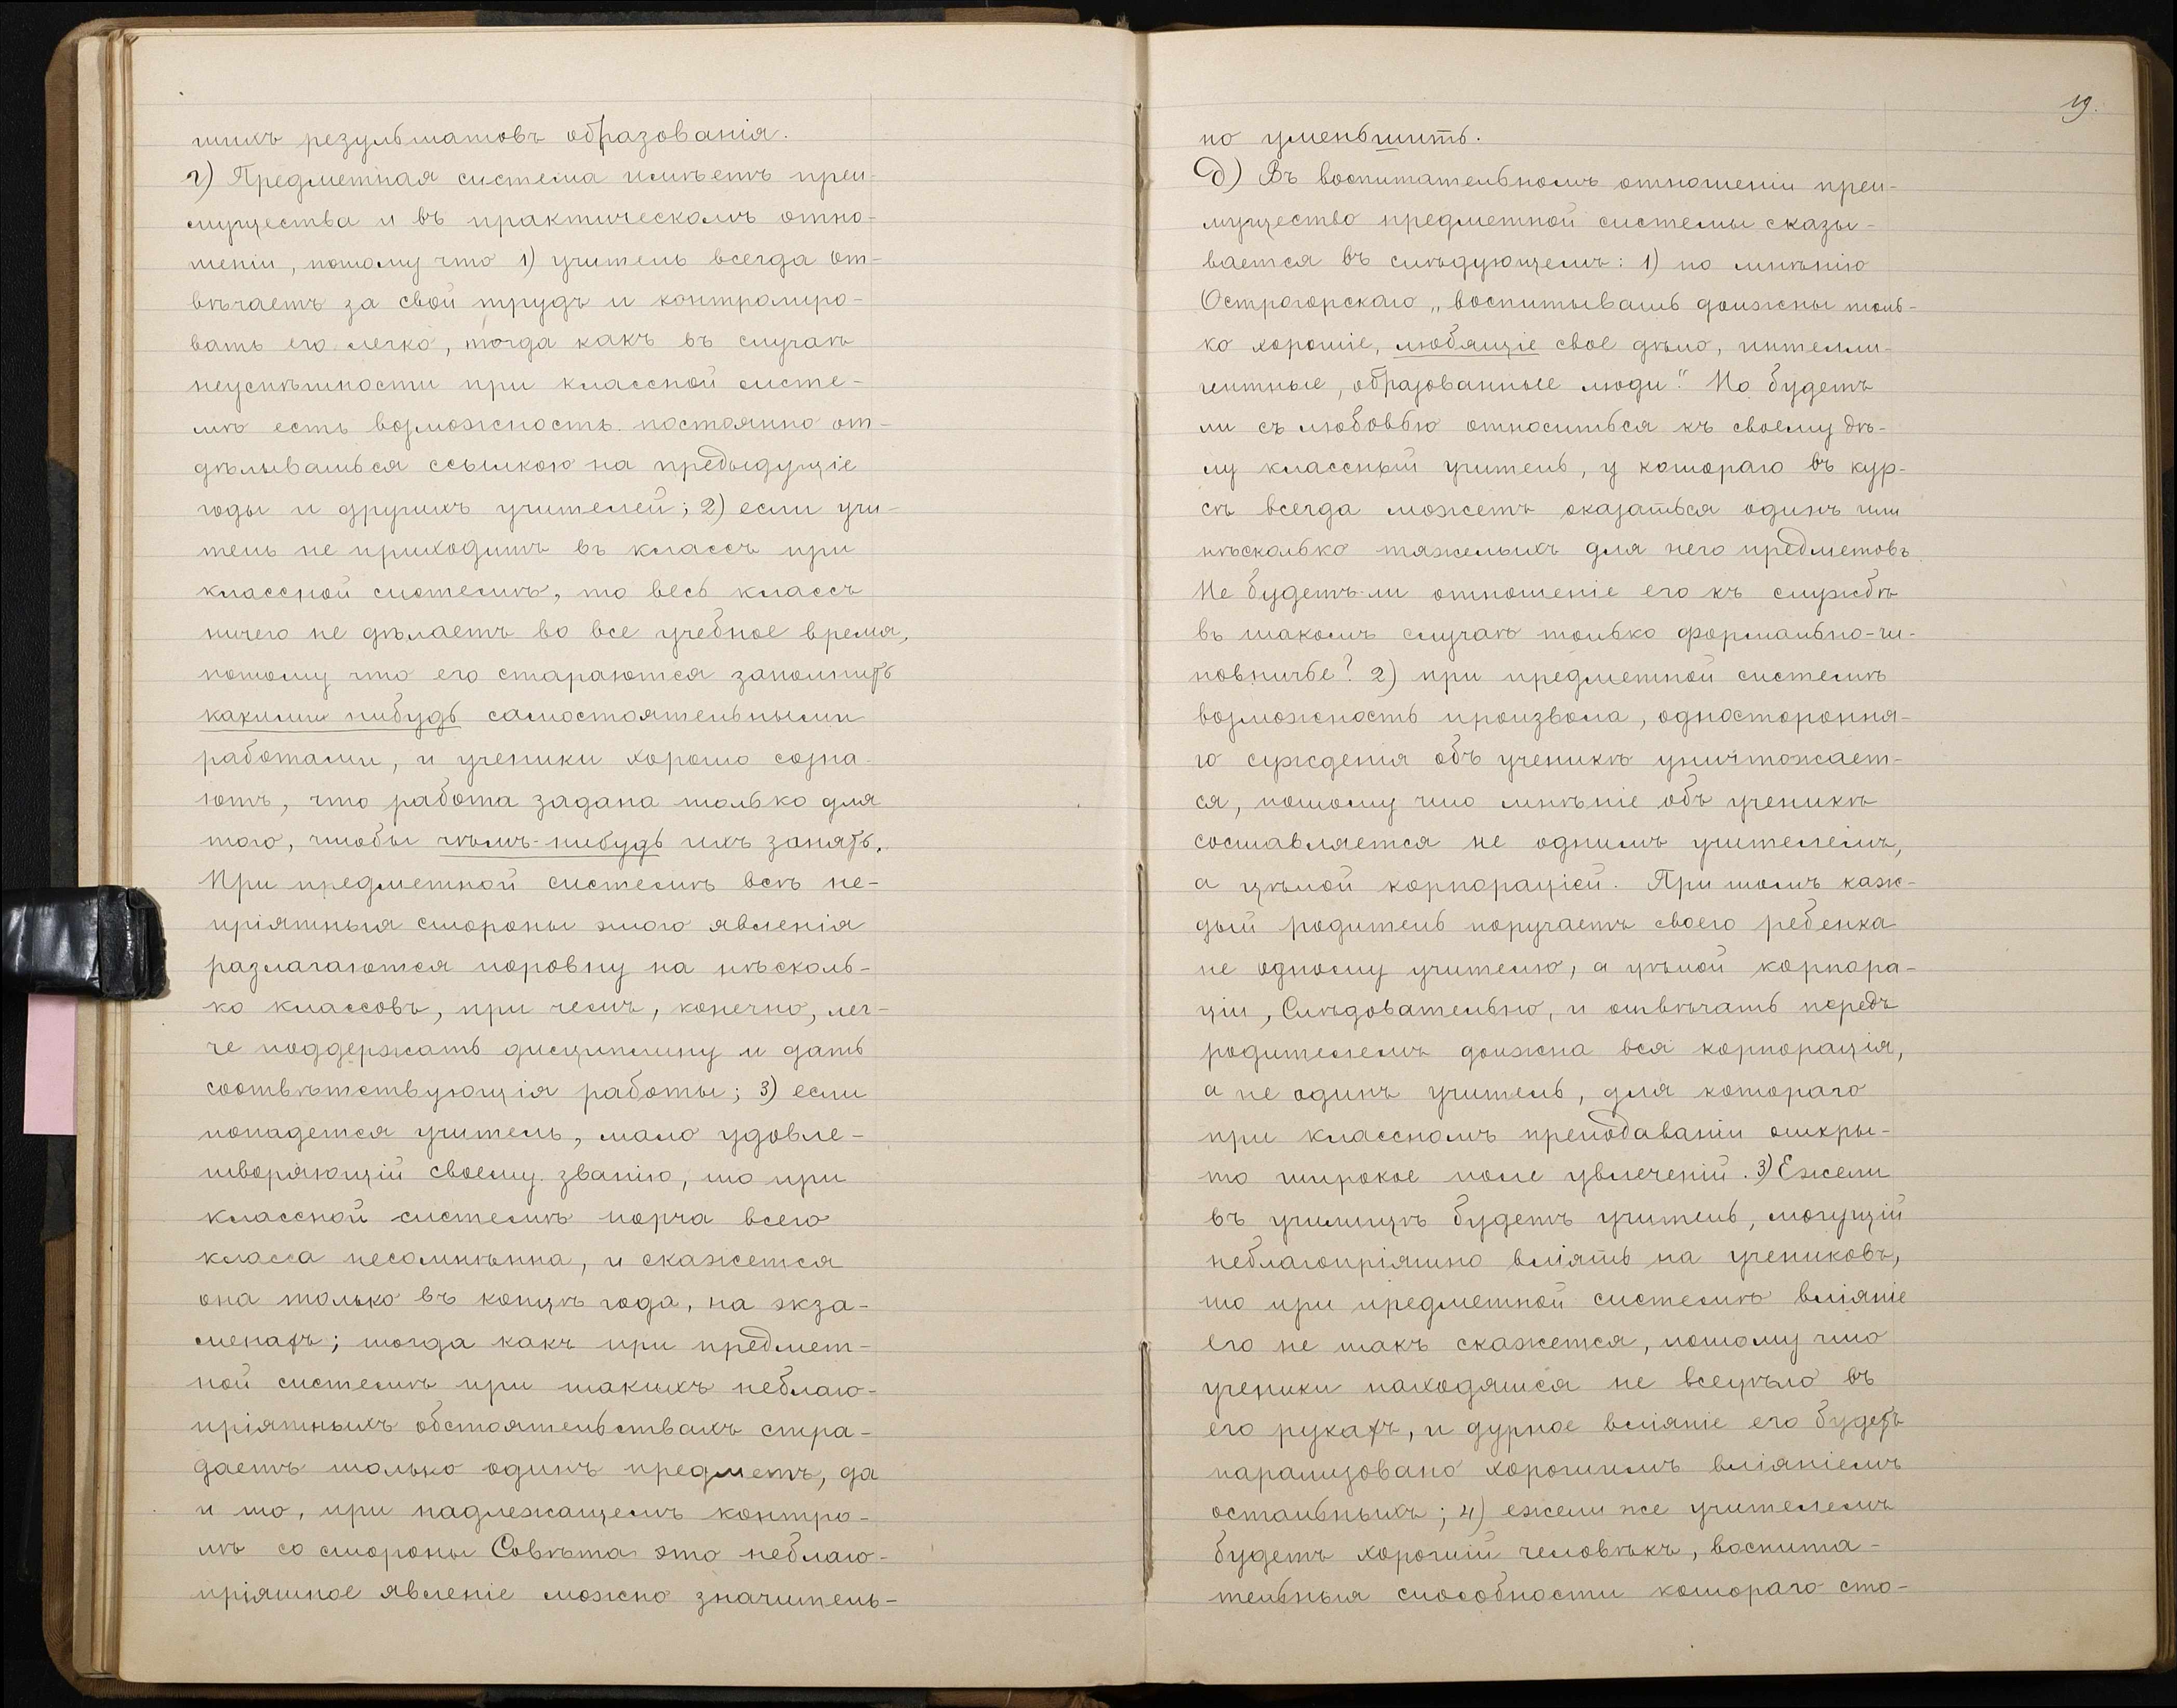 шихъ результатовъ образованія.
г) Предметная система имѣетъ преи-
мущества и въ практическомъ отно-
шеніи, потому что 1) учитель всегда от-
вѣчаетъ за свой трудъ и контролиро-
вать его легко, тогда какъ въ случаѣ
неуспѣшности при классной систе-
мѣ есть возможность постоянно от-
дѣлываться ссылкою на предыдущіе
годы и другихъ учителей; 2) если учи-
тель не приходитъ въ классъ при
классной системѣ, то весь классъ
ничего не дѣлаетъ во все учебное время,
потому что его стараются заполнить
какими нибудь самостоятельными
работами, и ученики хорошо созна-
ютъ, что работа задана только для
того, чтобы чѣмъ-нибудь ихъ занять.
При предметной системѣ всѣ не-
пріятныя стороны этого явленія
разлагаются поровну на нѣсколь-
ко классовъ, при чемъ, конечно, лег-
че поддержать дисциплину и дать
соотвѣтствующія работы; 3) если
попадется учитель, мало удовле-
творяющій своему званію, то при
классной системѣ порча всего
класса несомнѣнна, и скажется
она только въ концѣ года, на экза-
менахъ; тогда какъ при предмет-
ной системѣ при такихъ неблаго-
пріятныхъ обстоятельствахъ стра-
даетъ только одинъ предметъ, да
и то, при надлежащемъ контро-
лѣ со стороны Совѣта это неблаго-
пріятное явленіе можно значитель-
19.
но уменьшить.
д) Въ воспитательномъ отношеніи преи-
мущество предметной системы сказы-
вается въ слѣдующемъ: 1) по мнѣнію
Острогорскаго „воспитывать должны толь-
ко хорошіе, любящіе свое дѣло, интелли-
гентные, образованные люди." Но будетъ
ли съ любовью относиться къ своему дѣ-
лу классный учитель, у котораго въ кур-
сѣ всегда можетъ оказаться одинъ или
нѣсколько тяжелыхъ для него предметовъ
Не будетъ-ли отношеніе его къ службѣ
въ такомъ случаѣ только формально-чи-
новничье? 2) при предметной системѣ
возможность произвола, одностороння-
го сужденія объ ученикѣ уничтожает-
ся, потому что мнѣніе объ ученикѣ
составляется не однимъ учителемъ,
а цѣлой корпораціей. При томъ каж-
дый родитель поручаетъ своего ребенка
не одному учителю, а цѣлой корпора-
ціи, Слѣдовательно, и отвѣчать передъ
родителемъ должна вся корпорація,
а не одинъ учитель, для котораго
при классномъ преподаваніи откры-
то широкое поле увлеченій. 3) Ежели
въ училищѣ будетъ учитель, могущій
неблагопріятно вліять на учениковъ,
то при предметной системѣ вліяніе
его не такъ скажется, потому что
ученики находятся не всецѣло въ
его рукахъ, и дурное вліяніе его будетъ
парализовано хорошимъ вліяніемъ
остальныхъ; 4) ежели же учителемъ
будетъ хорошій человѣкъ, воспита-
тельныя способности котораго сто-